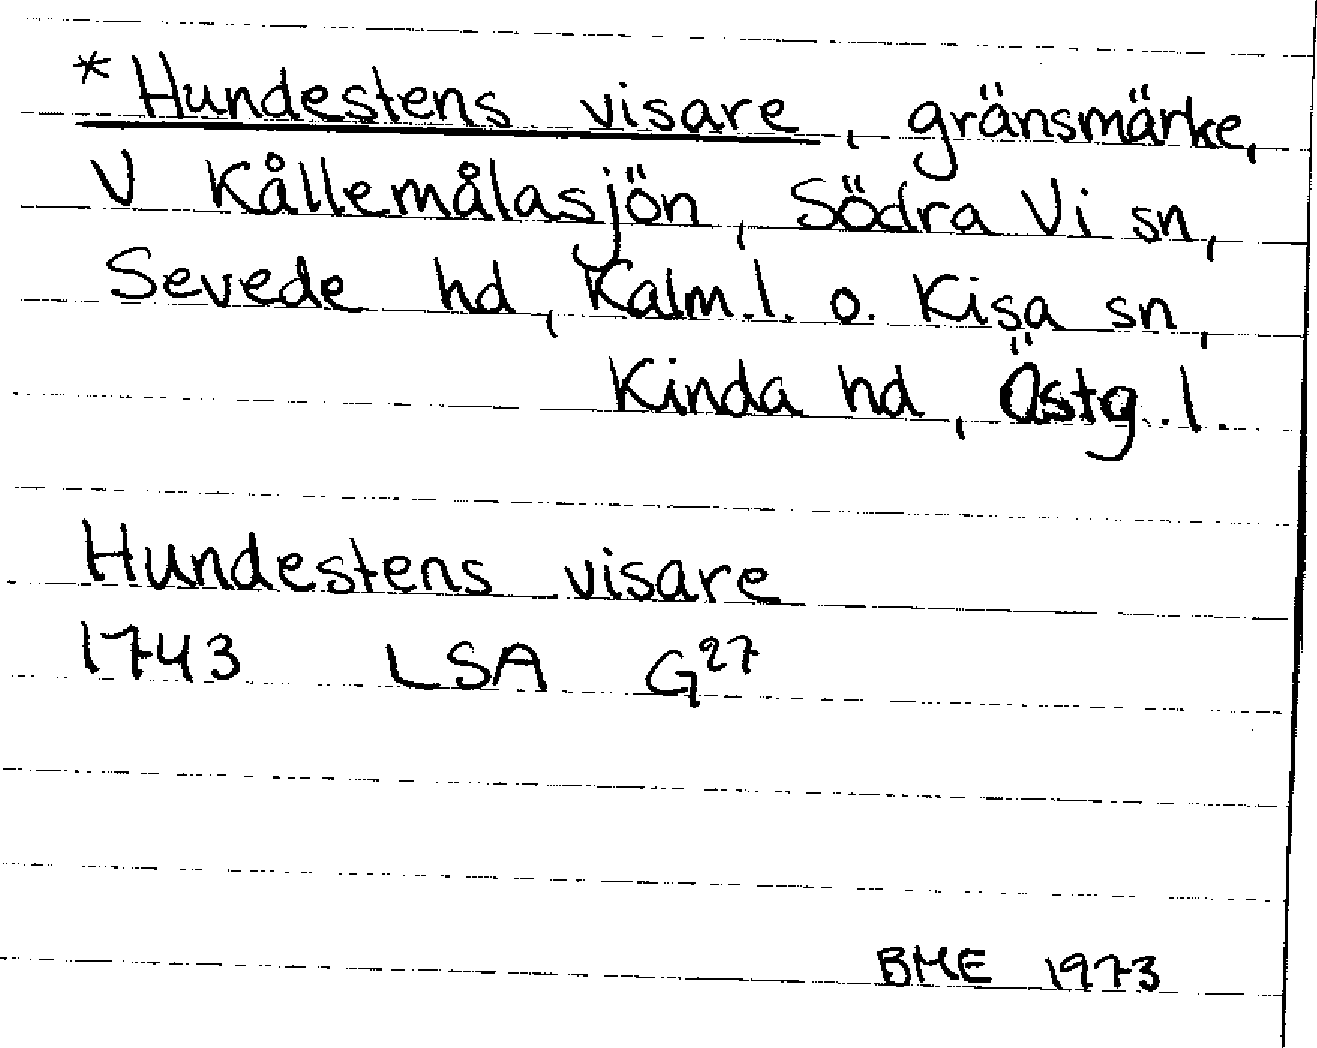 * Hundestens visare, gränsmärke,
V Kållemålasjön, Södra Vi sn,
Sevede hd, Kalm.l. o. Kisa sn,
Kinda hd, Östg.l.
Hundestens visare
1743 LSA G²⁷
BME 1973